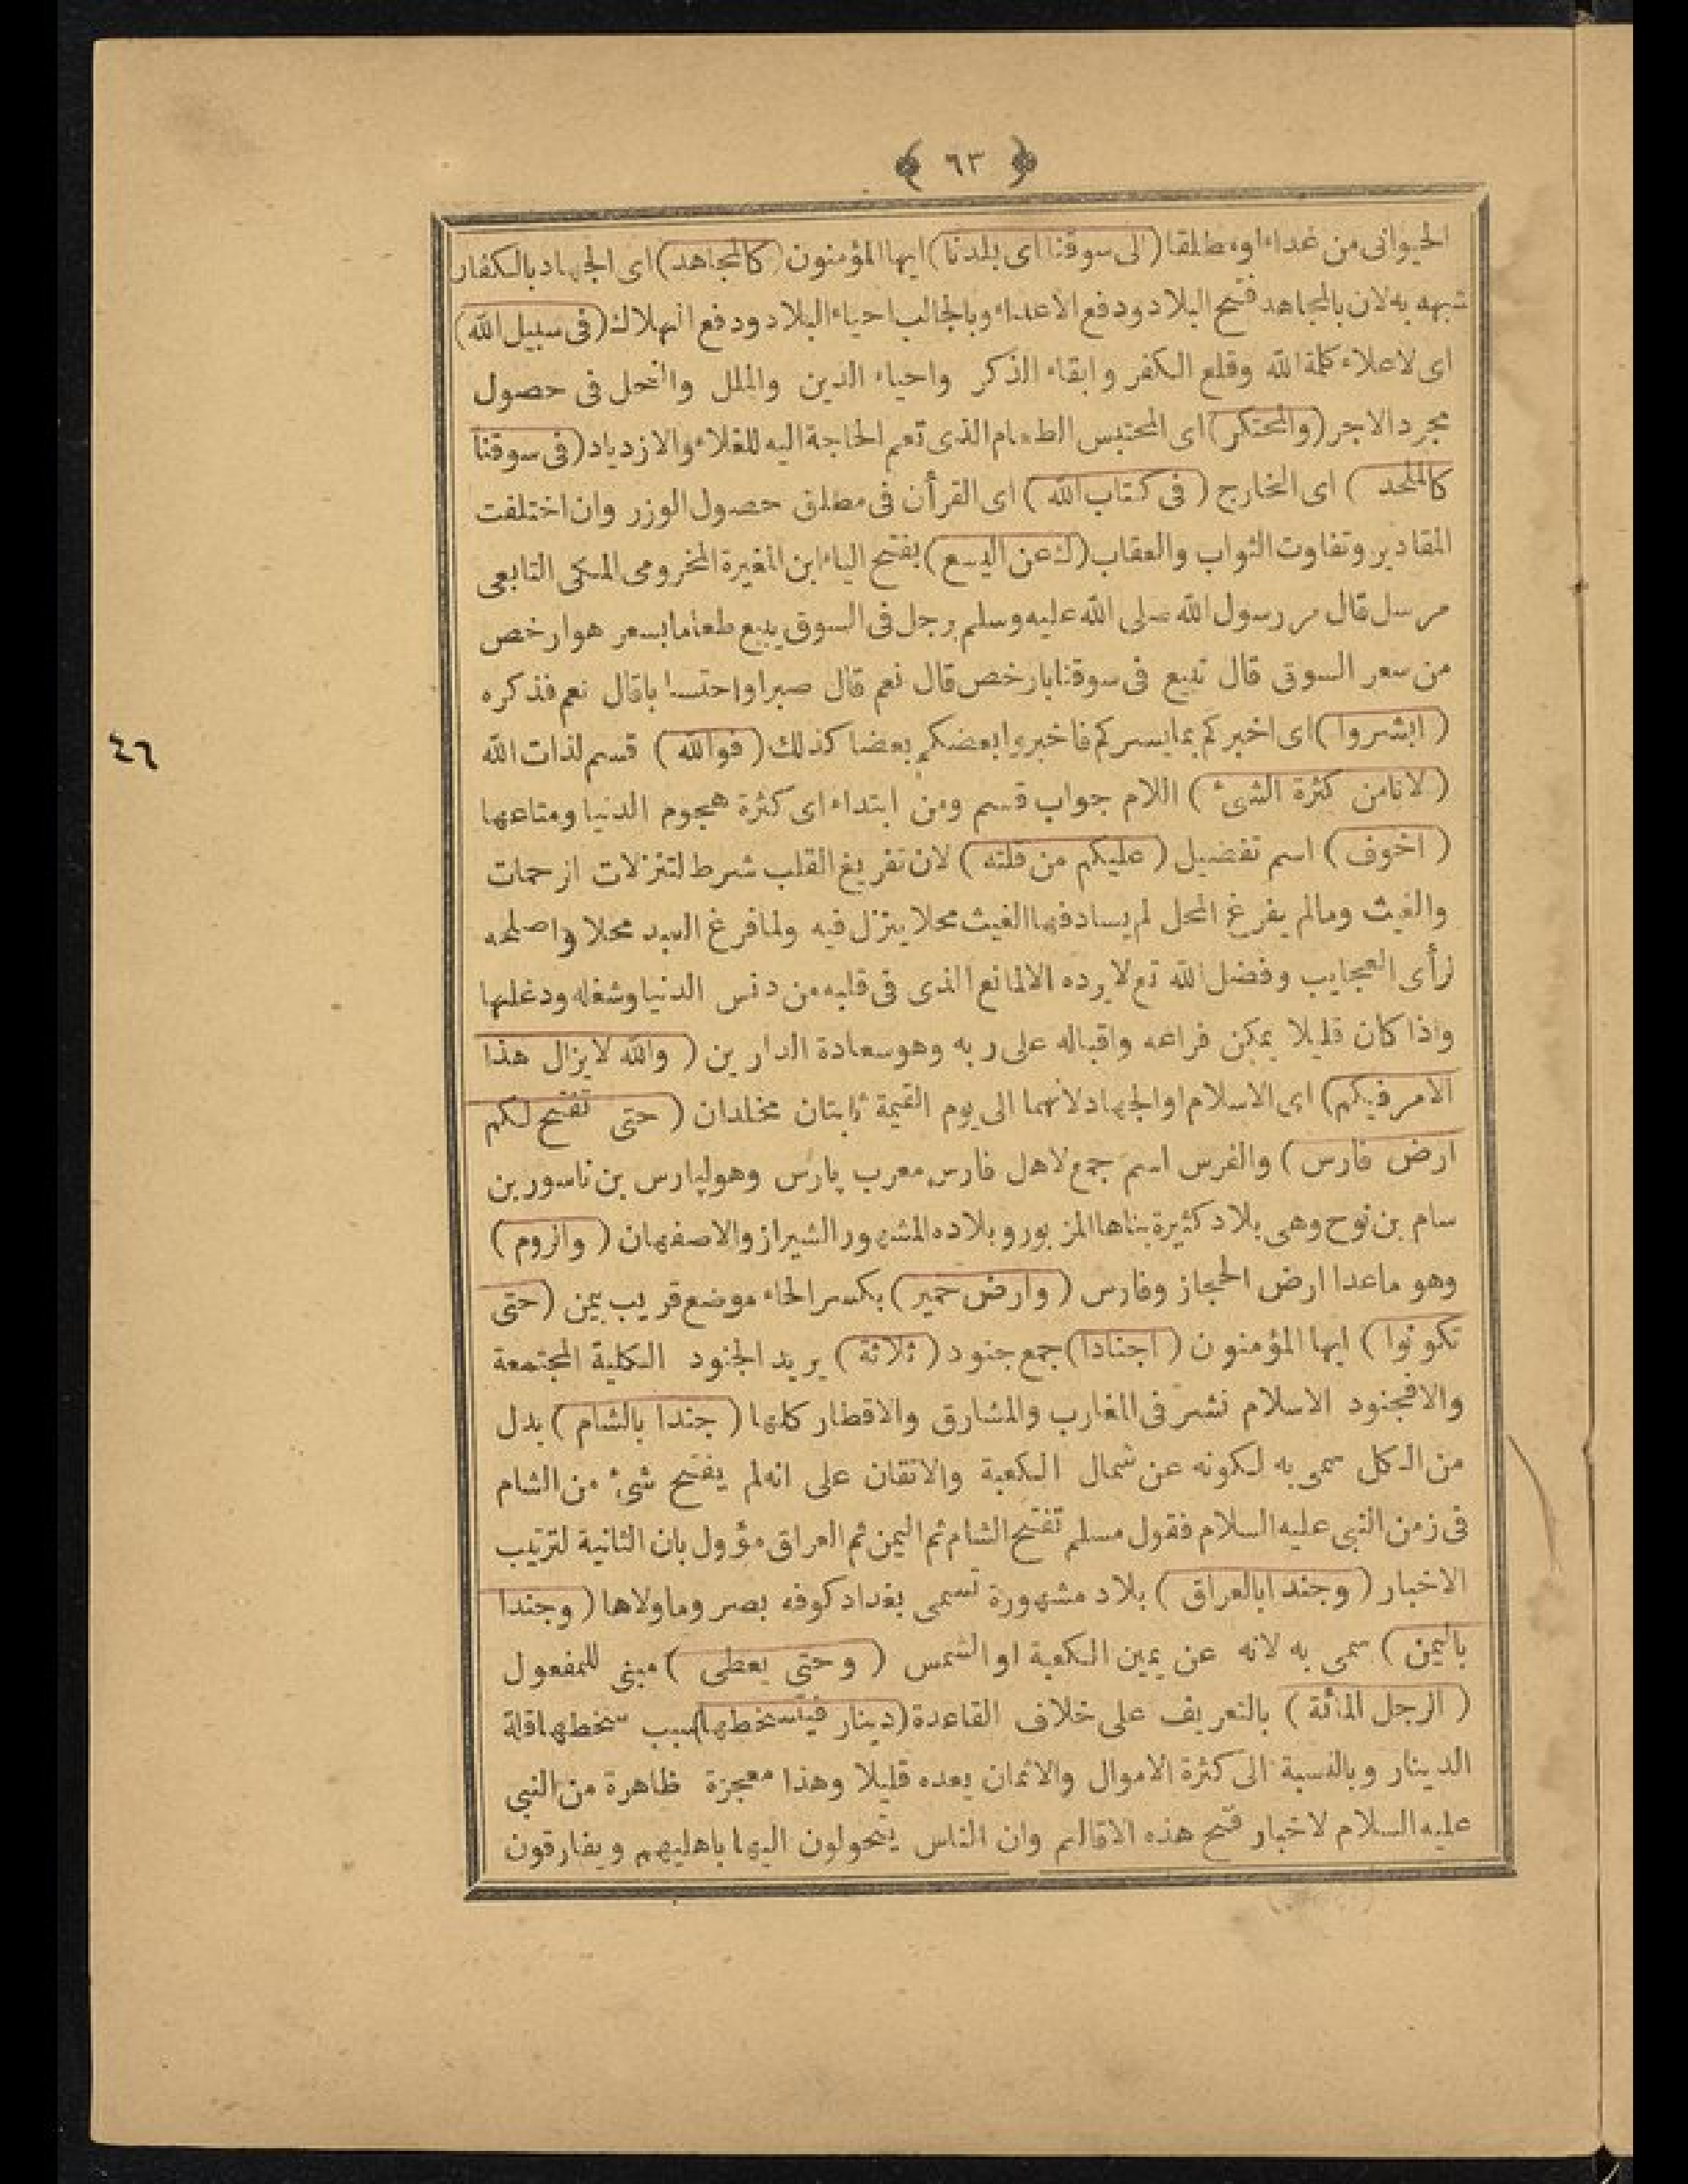 ﴿ ٦٣ ﴾
الحيوانى من غداء او مطلقا (الى سوقنا اى بلدنا) ايها المؤمنون (كالمجاهد) اى الجهاد بالكفار
شبهه به لان بالمجاهد فتح البلاد ودفع الاعداء وبالجالب احياء البلاد ودفع الهلاك (فى سبيل الله)
اى لاعلاء كلمة الله وقلع الكفر وابقاء الذكر واحياء الدين والملل والنحل فى حصول
مجرد الاجر (والمحتكر) اى المحتبس الطعام الذى تعم الحاجة اليه للغلاء والازدياد (فى سوقنا
كالملحد) اى الخارج (فى كتاب الله) اى القرأن فى مطلق حصول الوزر وان اختلفت
المقادير وتفاوت الثواب والعقاب (ك عن اليسع) بفتح الياء ابن المغيرة المخرومى المكى التابعى
مرسل قال مر رسول الله صلى الله عليه وسلم برجل فى السوق يبيع طعاما بسعر هو ارخص
من سعر السوق قال تبيع فى سوقنا بارخص قال نعم قال صبرا واحتسابا قال نعم فذكره
(ابشروا) اى اخبركم بما يسركم فاخبروا بعضكم بعضا كذلك (فوالله) قسم لذات الله
(لانا من كثرة الشئ) اللام جواب قسم ومن ابتداء اى كثرة هجوم الدنيا ومتاعها
(اخوف) اسم تفضيل (عليكم من قلته) لان تفريغ القلب شرط لتنزلات الرحمات
والغيث ومالم يفرغ المحل لم يسادفها الغيث محلا ينزل فيه ولما فرغ العبد محلا واصلحه
لرأى العجايب وفضل الله تع لا يرده الا لمانع الذى فى قلبه من دنس الدنيا وشغله ودغلها
واذا كان قليلا يمكن فراغه واقباله على ربه وهو سعادة الدارين (والله لا يزال هذا
الامر فيكم) اى الاسلام او الجهاد لانهما الى يوم القيمة ثابتان مخلدان (حتى تفتح لكم
ارض فارس) والفرس اسم جمع لاهل فارس معرب پارس وهو لپارس بن ناسور بن
سام بن نوح وهى بلاد كثيرة بناها المزبور وبلاده المشهور الشيراز والاصفهان (والروم)
وهو ماعدا ارض الحجاز وفارس (وارض حمير) بكسر الحاء موضع قريب يمن (حتى
تكونوا) ايها المؤمنون (اجنادا) جمع جنود (ثلاثة) يريد الجنود الكلية المجتمعة
والا فجنود الاسلام نشر فى المغارب والمشارق والاقطار كلها (جندا بالشام) بدل
من الكل سمى به لكونه عن شمال الكعبة والاتقان على انه لم يفتح شئ من الشام
فى زمن النبى عليه السلام فقول مسلم تفتح الشام ثم اليمن ثم العراق مؤول بان الثانية لترتيب
الاخبار (وجندا بالعراق) بلاد مشهورة تسمى بغداد كوفه بصر وماولاها (وجندا
باليمن) سمى به لانه عن يمين الكعبة او الشمس (وحتى يعطى) مبنى للمفعول
(الرجل المائة) بالتعريف على خلاف القاعدة (دينار فيتسخطها) سبب سخطها قلة
الدينار وبالنسبة الى كثرة الاموال والاثمان يعده قليلا وهذا معجزة ظاهرة من النبى
عليه السلام لاخبار فتح هذه الاقاليم وان الناس يتحولون اليها باهليهم ويفارقون
٤٦